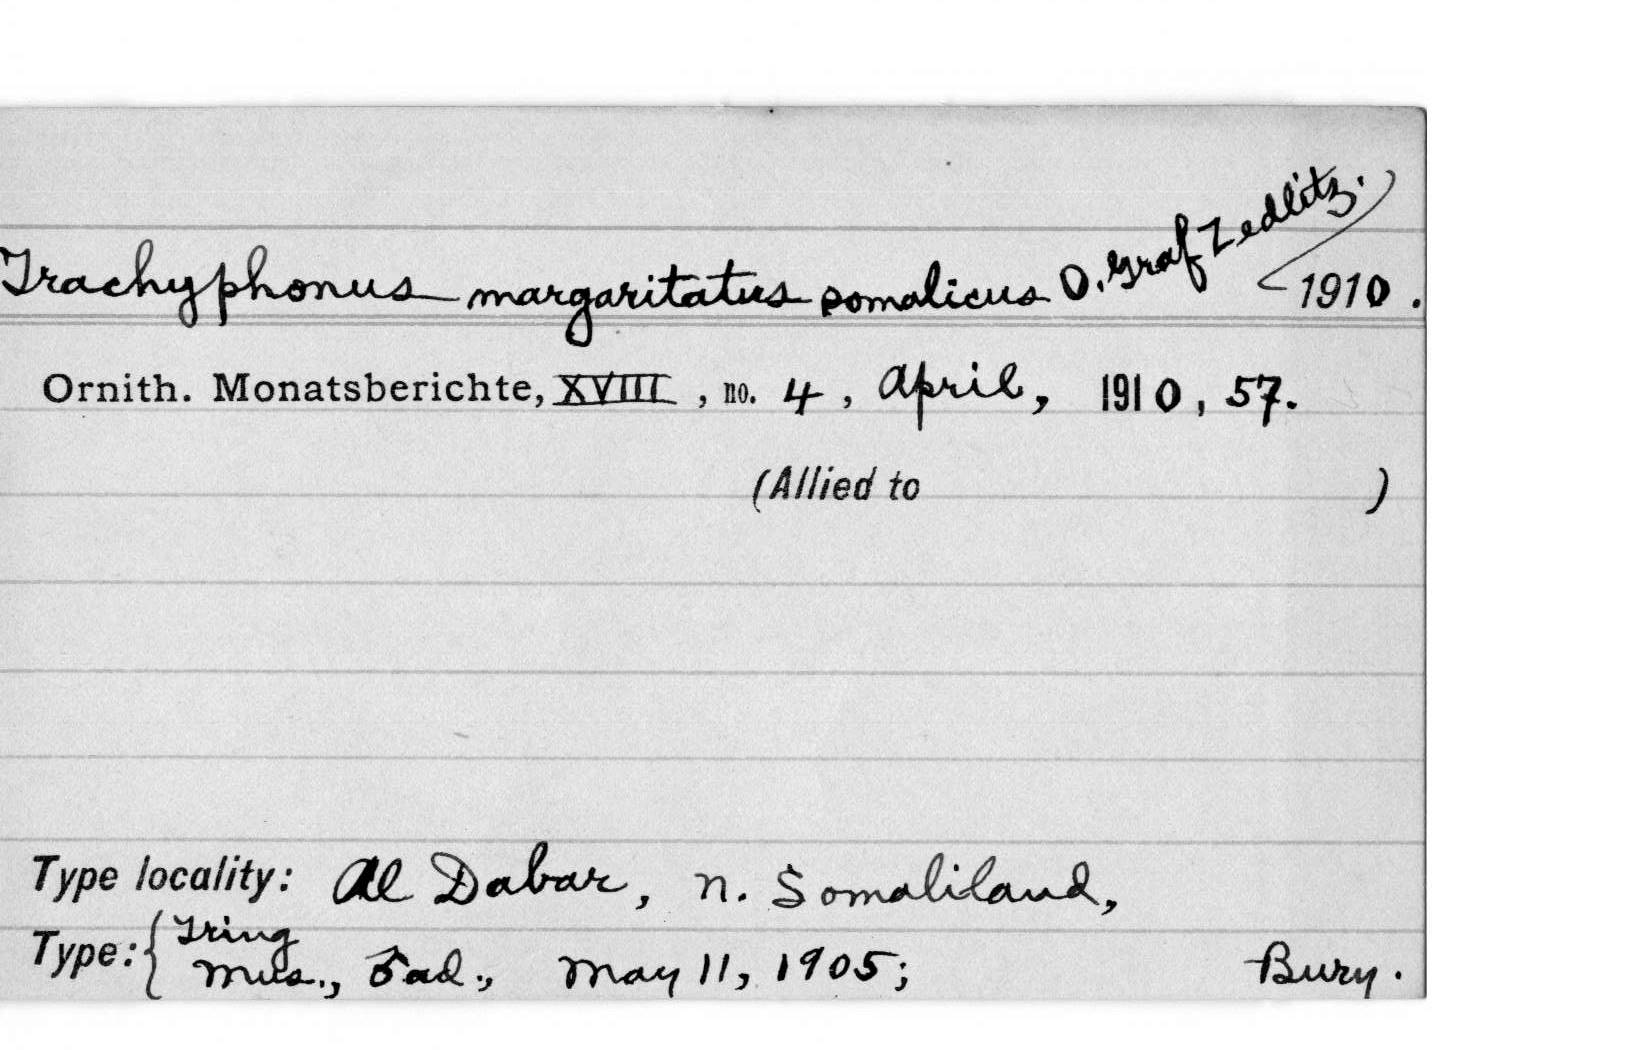 Trachyphonus margaritatus somalicus O. Graf Zedlitz. 1910.
Ornith. Monatsberichte, XVIII, no. 4, April, 1910, 57.
(Allied to )
Type locality: Al Dabar, n. Somaliland,
Type: { Tring
Mus., ♂ ad., May 11, 1905; Bury.